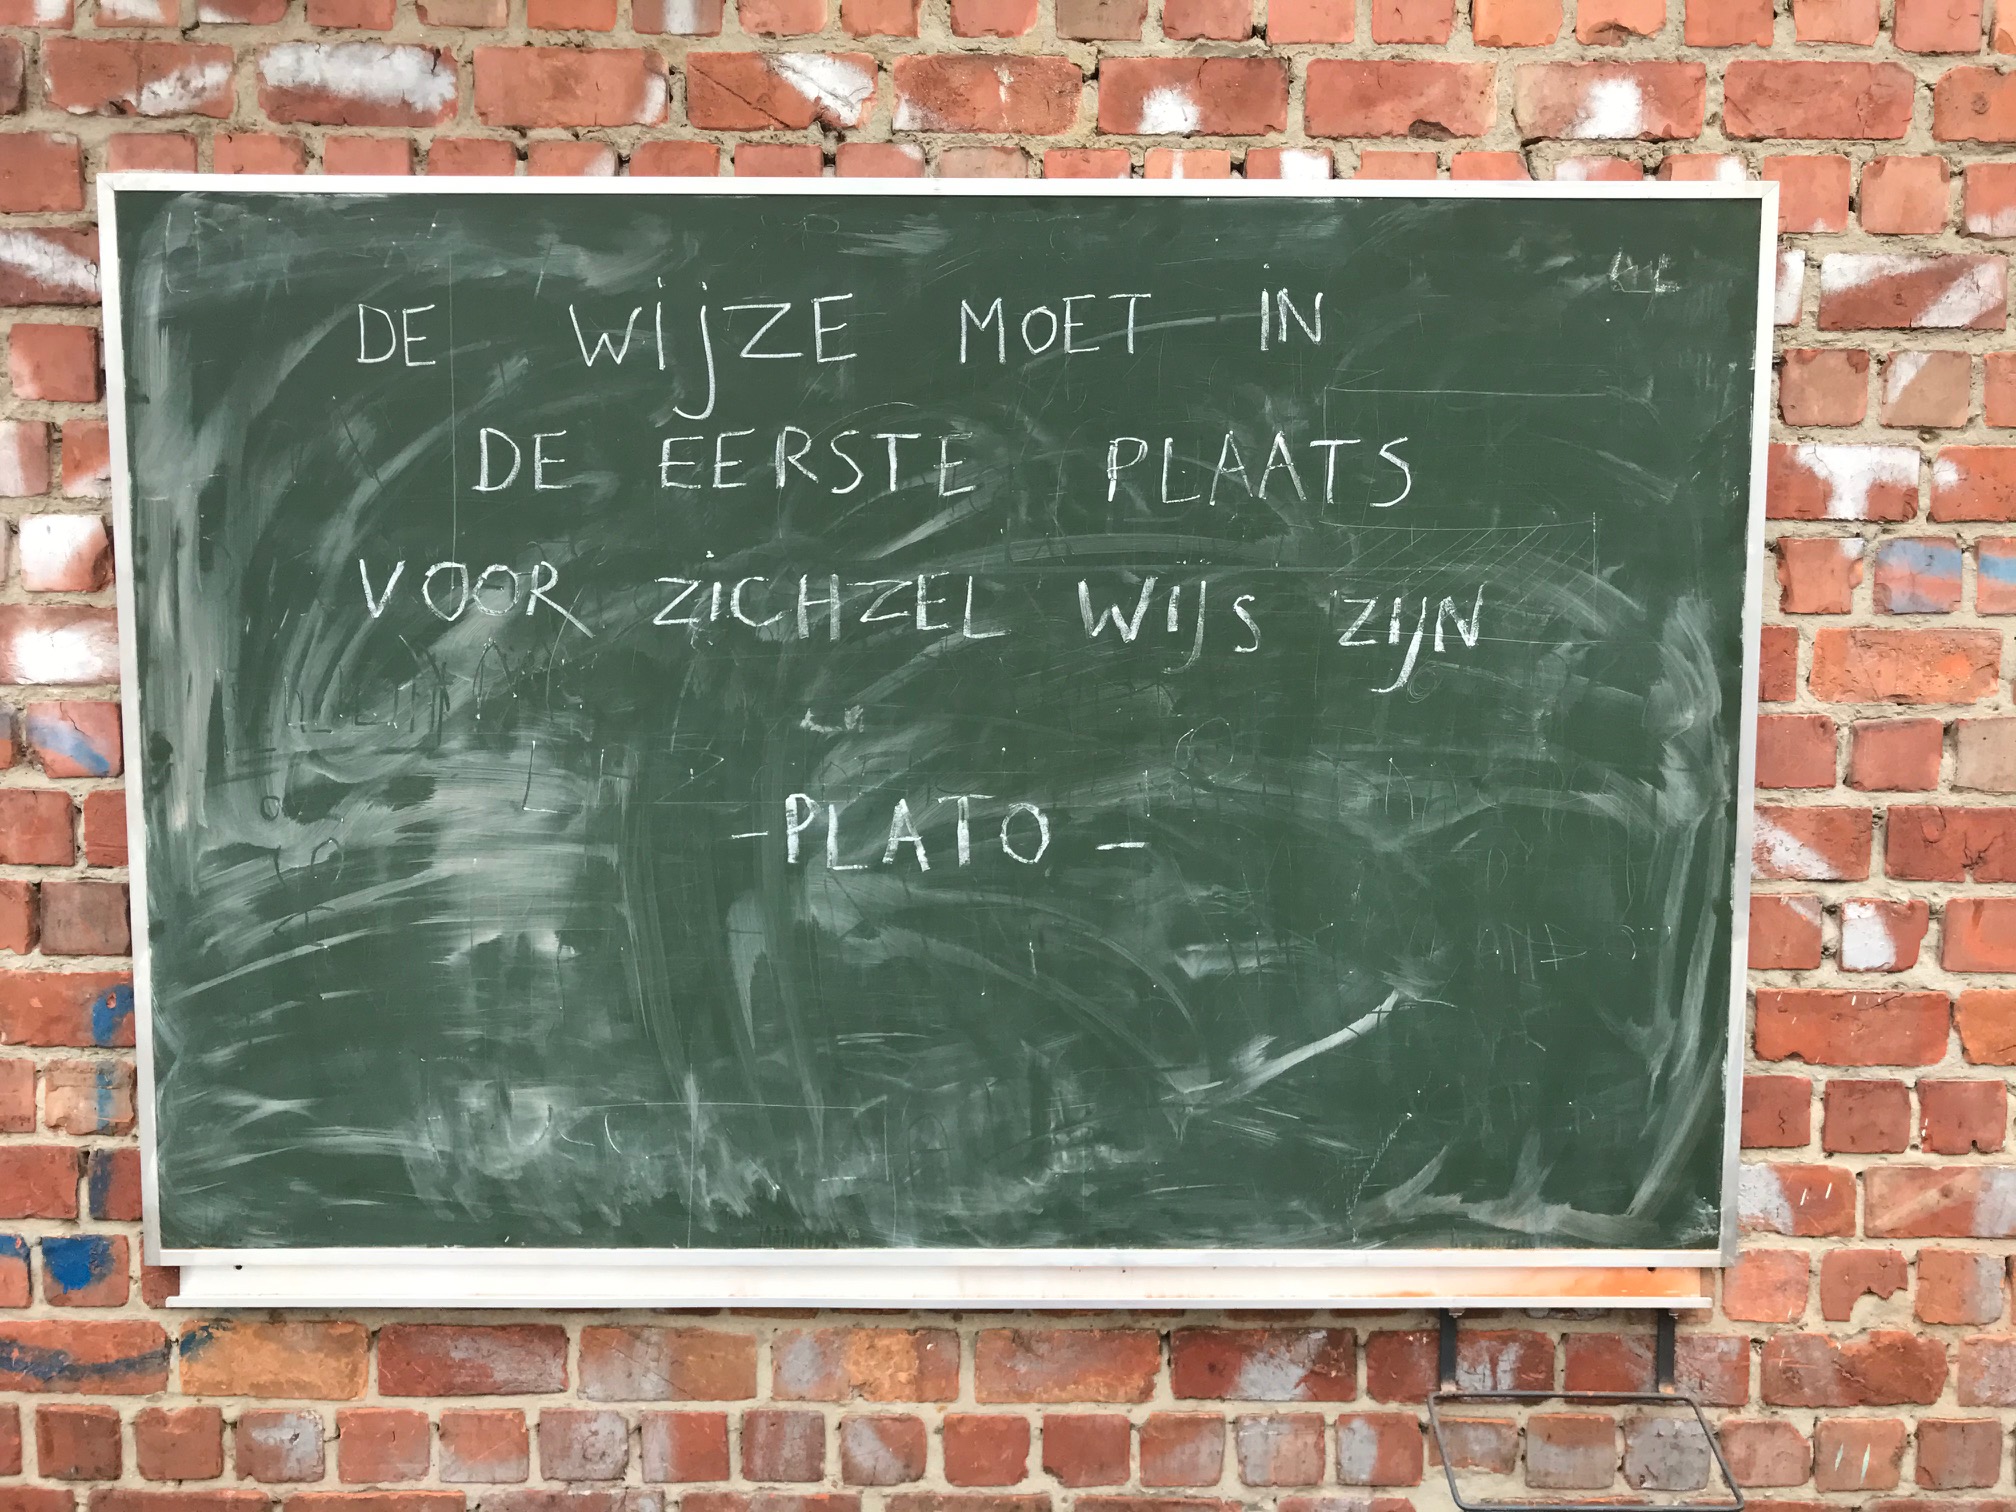 DE WijZE MOET IN
DE EERSTE PLAATS
VOOR ZICHZEL WIJS ZIJN
- PLATO -